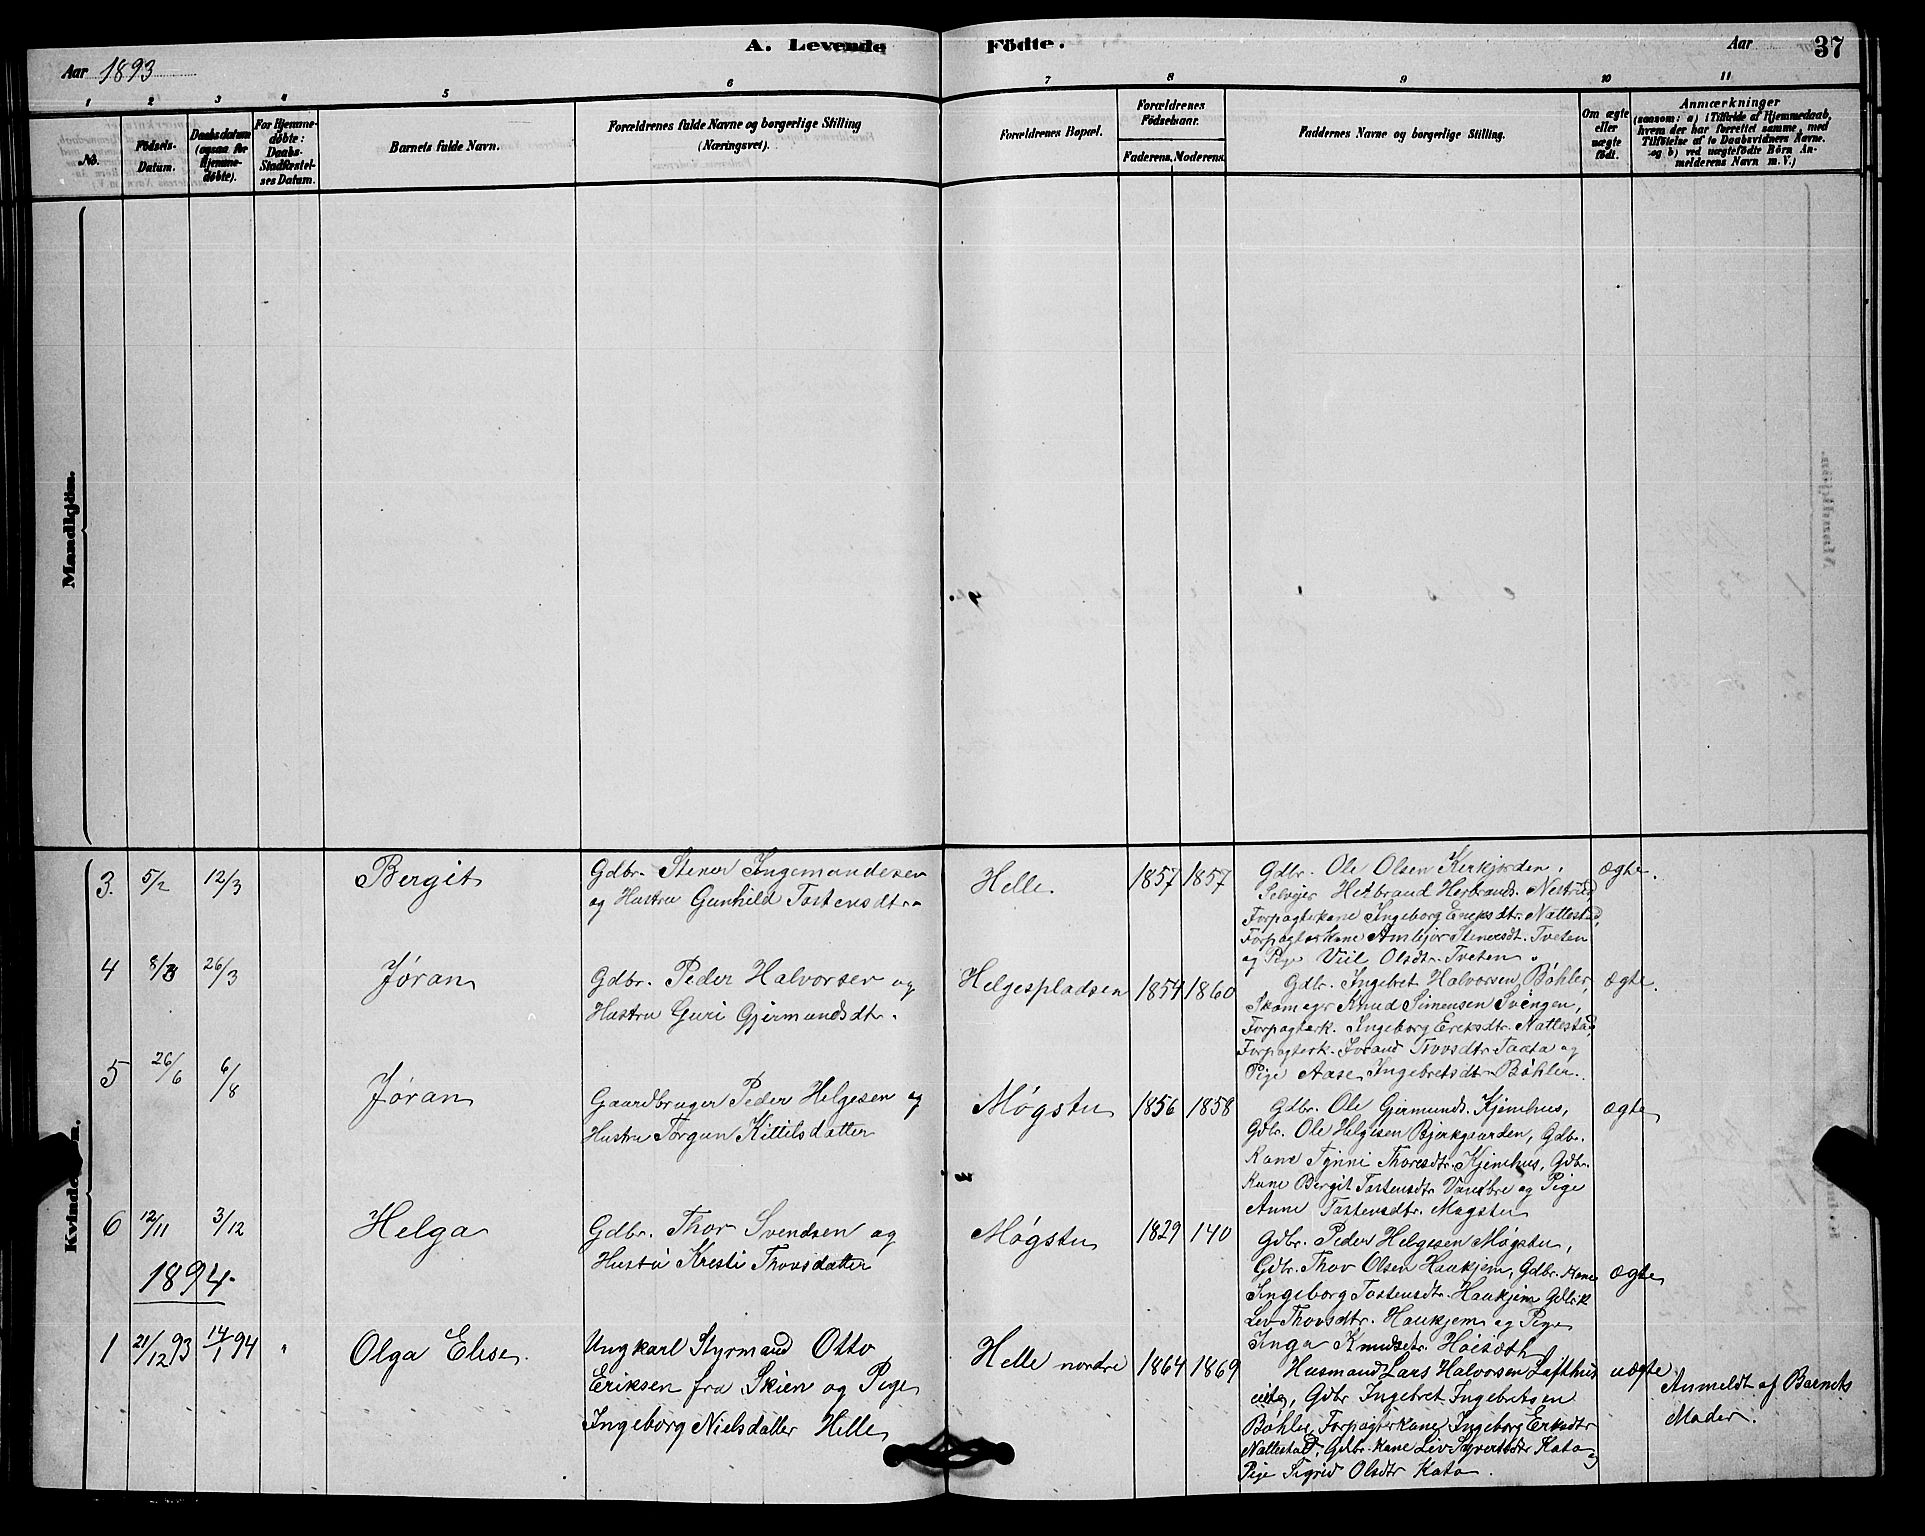 A. Levende Födte.
Aar 1893
Aar
37
1
2
3
4
5
6
7
8
9
10
11
No.
Födsels-
Datum.
Daabsdatum
(ogsaa for
Hjemme-
døbte).
For Hjemme-
døbte:
Daabs-
Stadfæstel-
ses Datum.
Barnets fulde Navn.
Forældrenes fulde Navne og borgerlige Stilling
(Næringsvei).
Forældrenes Bopæl.
Forældrenes
Fødselsaar.
Faderens.
Moderens.
Faddernes Navne og borgerlige Stilling.
Om ægte
eller
uægte
født.
Anmærkninger
(saasom: a) i Tilfælde af Hjemmedaab,
hvem der har forrettet samme, med
Tilføielse af to Daabsvidners Navne.
og b) ved uægtefødte Børn An-
melderens Navn m. V.)
Mandkjön.
3. 5/2 12/3 Bergit
Gdbr. Stener Ingemundsen
og Hustru Gunhild Tostensdtr.
Helle. 1857 1857
Gdbr. Ole Olsen Kirkjorden.
Selveier Herbrand Herbrands. Nestrud,
Forpagterkone Ingeborg Eriksdtr. Nattestad,
Forpagterkone Ambjør Stenersdt. Tveten
og Pige Viil Olsdtr. Tveten.
ægte.
4 8/3 26/3 Jøran
Gdbr. Peder Halvorsen og
Hustru Guri Gjermundsdtr.
Helgespladsen 1854 1860
Gdbr. Ingebret Halvorsen Bøhler,
Skomagr Knud Simensen Svengen,
Forpagterk. Ingeborg Eriksdtr. Nattestad,
Forpagterk. Jorand Thovsdtr. Taata og
Pige Aase Ingebretsdtr Bøhler.
ægte.
5 26/6 6/8 Jøran
Gaardbruger Peder Helgesen og
Hustru Torgun Kittilsdatter
Møgstu 1856 1858
Gdbr. Ole Gjermunds. Kjemhus,
Gdbr. Ole Helgesen Bjerkgaarden, Gdbr.
Kone Tynni Thoresdtr. Kjemhus, Gdbr.
Kone Bergit Tostensdtr og Pige
Anne Tostensdtr. Møgstu
ægte
Kvindekjön.
6 12/11 3/12 Helga
Gdbr. Thor Svendsen og
Hustru Kristi Thovsdatter
Møgstu 1829 140
Gdbr. Peder Helgesen Møgstu,
Gdbr. Thov Olsen Haukjem, Gdbr. Kone
Ingeborg Tostensdtr. Haukjem Gdbrk
Liv Thovsdtr. Haukjem og Pige
Inga Knudsdtr. Høisæth
ægte
1894.
1 21/12 93 14/1 94 " Olga Elise
Ungkarl Styrmand Otto
Eriksen fra Skien og Pige
Ingeborg Nielsdatter Helle
Helle nordre 1864 1869
Husmand Lars Halvorsen Lofthus
eie, Gdbr Ingebret Ingebretsen
Bøhler, Forpagterkone Ingeborg Eriksdtr
Nattestad, Gdbr. kone Liv Syvertsdtr Kata og
Pige Sigrid Olsdtr Kata.
uægte
Anmeldt af Barnets
Moder.